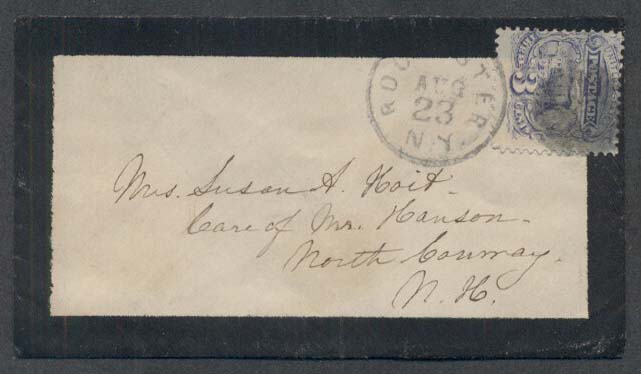 ROCHESTER
AUG
23
N.Y.
POSTAGE
3
Mrs. Susan A. Hoit.
Care of Mr. Hanson.
North Conway.
N. H.